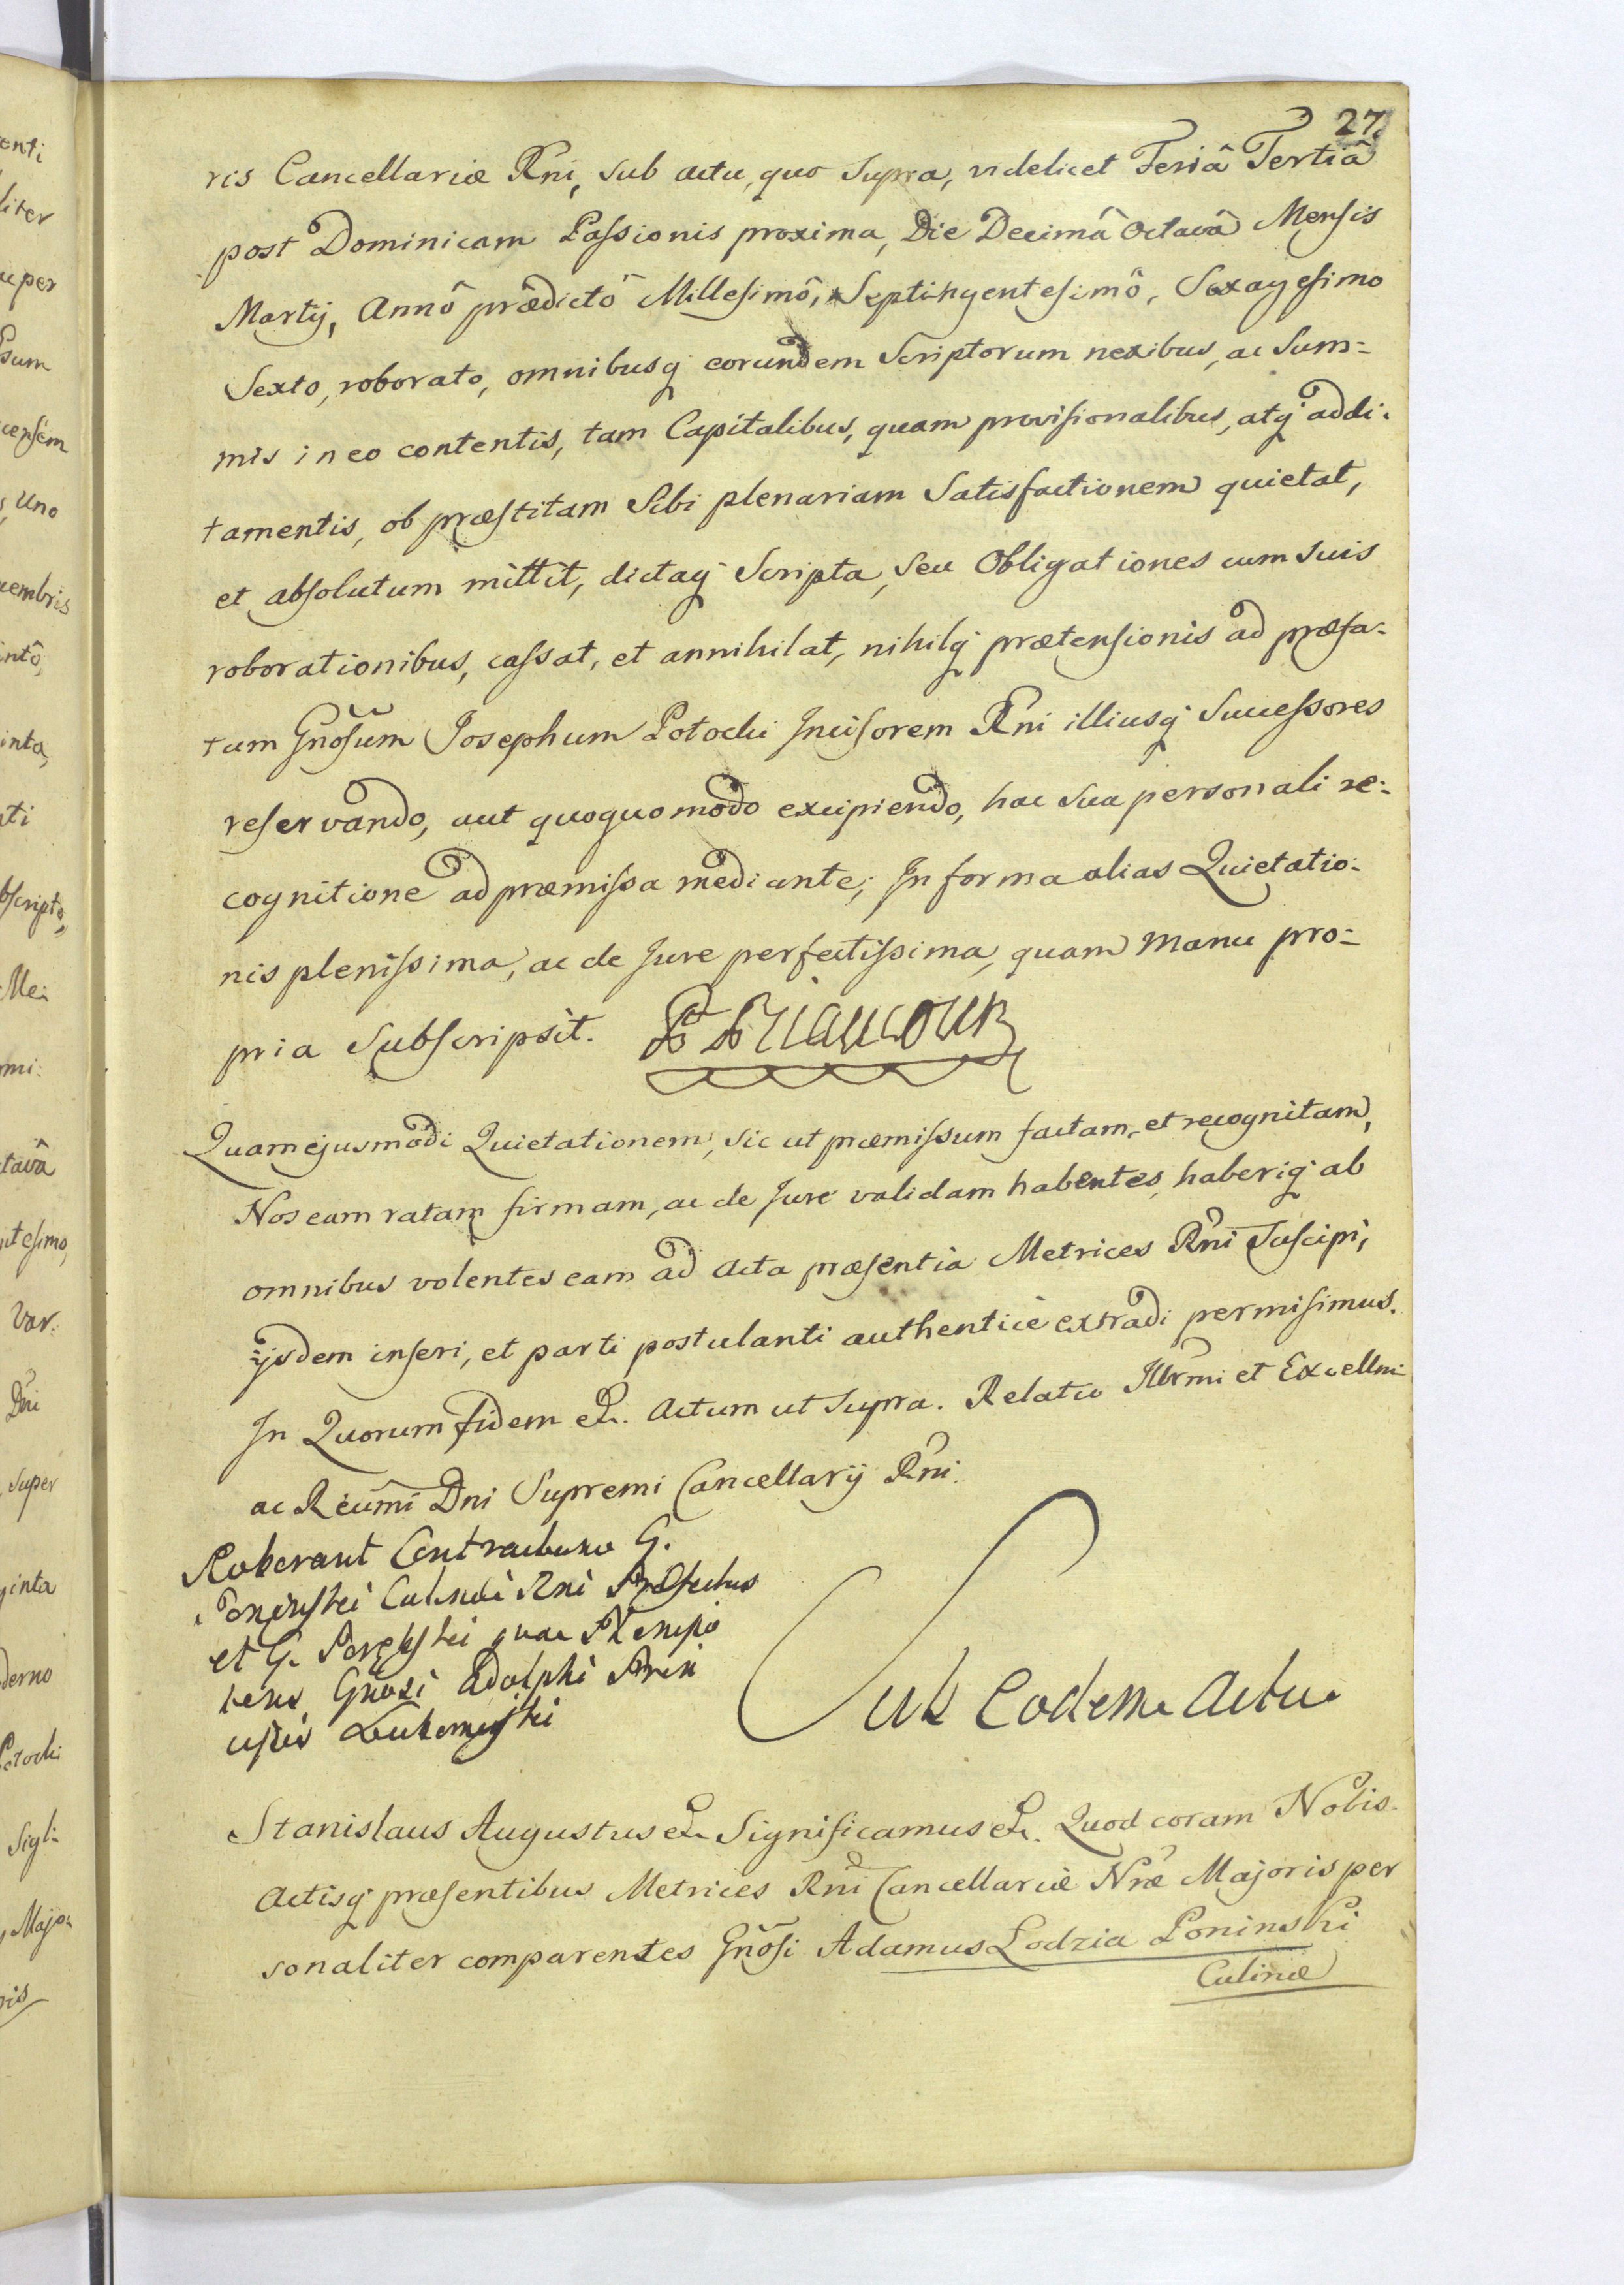 27.
ris Cancellariæ Rni, sub actu, quo supra, videlicet Feriâ Tertiâ
post Dominicam Passionis proxima, Die Decimâ Octavâ Mensis
Martij, Annô prædictô Millesimô, Septingentesimô, Sexagesimo
Sexto, roborato, omnibusq eorundem Scriptorum nexibus, ac Sum=
mis in eo contentis, tam Capitalibus, quam provisionalibus, atq addi=
tamentis, ob præstitam Sibi plenariam Satisfactionem quietat,
et absolutum mittit, dictaq Scripta, seu Obligationes cum suis
roborationibus, cassat, et annihilat, nihilq prætensionis ad præfa=
tum Gnõsum Josephum Potocki Incisorem Rni illiusq Successores
reservando, aut quoquomodo excipiendo, hac sua personali re=
cognitione ad præmissa mediante; In forma alias Quietatio=
nis plenissima, ac de Jure perfectissima, quam manu pro=
pria Subscripsit.
Quam ejusmodi Quietationem, sic ut præmissum factam, et recognitam,
Nos eam ratam firmam, ac de Jure validam habentes, haberiq ab
omnibus volentes eam ad Acta præsentia Metrices Rni Suscipi,
ijsdem inseri, et parti postulanti authenticè extradi permisimus.
In Quorum fidem &. Actum ut supra. Relatio Illrmi et Excellmi
ac Reũmi Dni Supremi Cancellarij Rni.
Roborant Contractum G.
Poninski Culinæ Rni Præfectus
et G. qua Plenipo
tens Gnosi Adolphi Prin
cipis
Sub Eodem Actu
Stanislaus Augustus & Significamus &. Quod coram Nobis
Actisq præsentibus Metrices Rni Cancellariæ Nræ Majoris per
sonaliter comparentes Gnõsi Adamus Lodzia Poninski
Culinæ
enti
liter
uper
sum
Uno
embris
intô,
inta,
nti
bscripto,
Me=
mi=
tavâ
ntesimo,
Var=
Dni
super
ginta
derno
Potocki
Sigl=
Majo=
ris